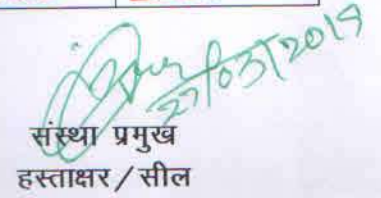 27/03/2019
संस्था प्रमुख
हस्ताक्षर / सील